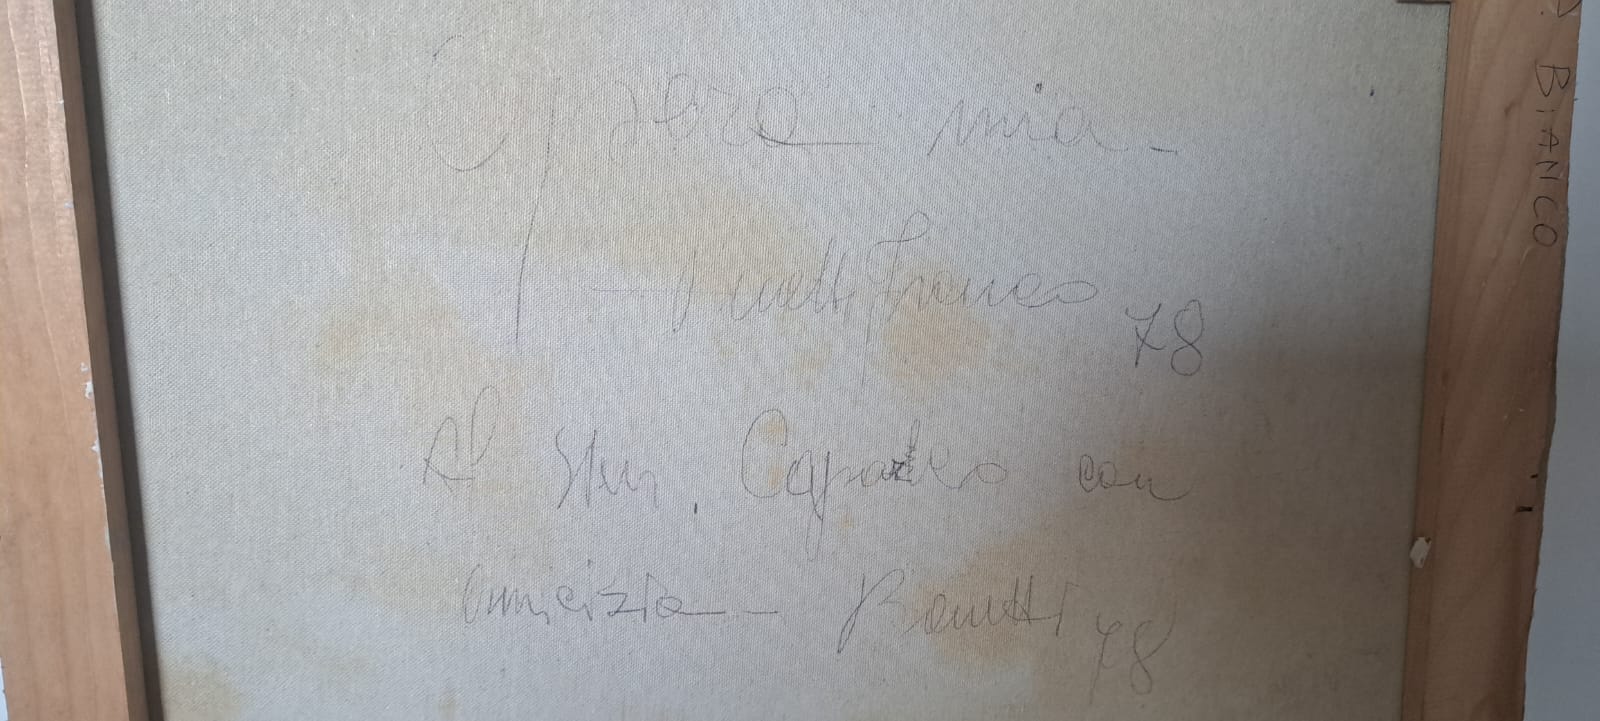 Opera mia -
Franco 78
Al Sig. con
amicizia - Benetti 78
BIANCO